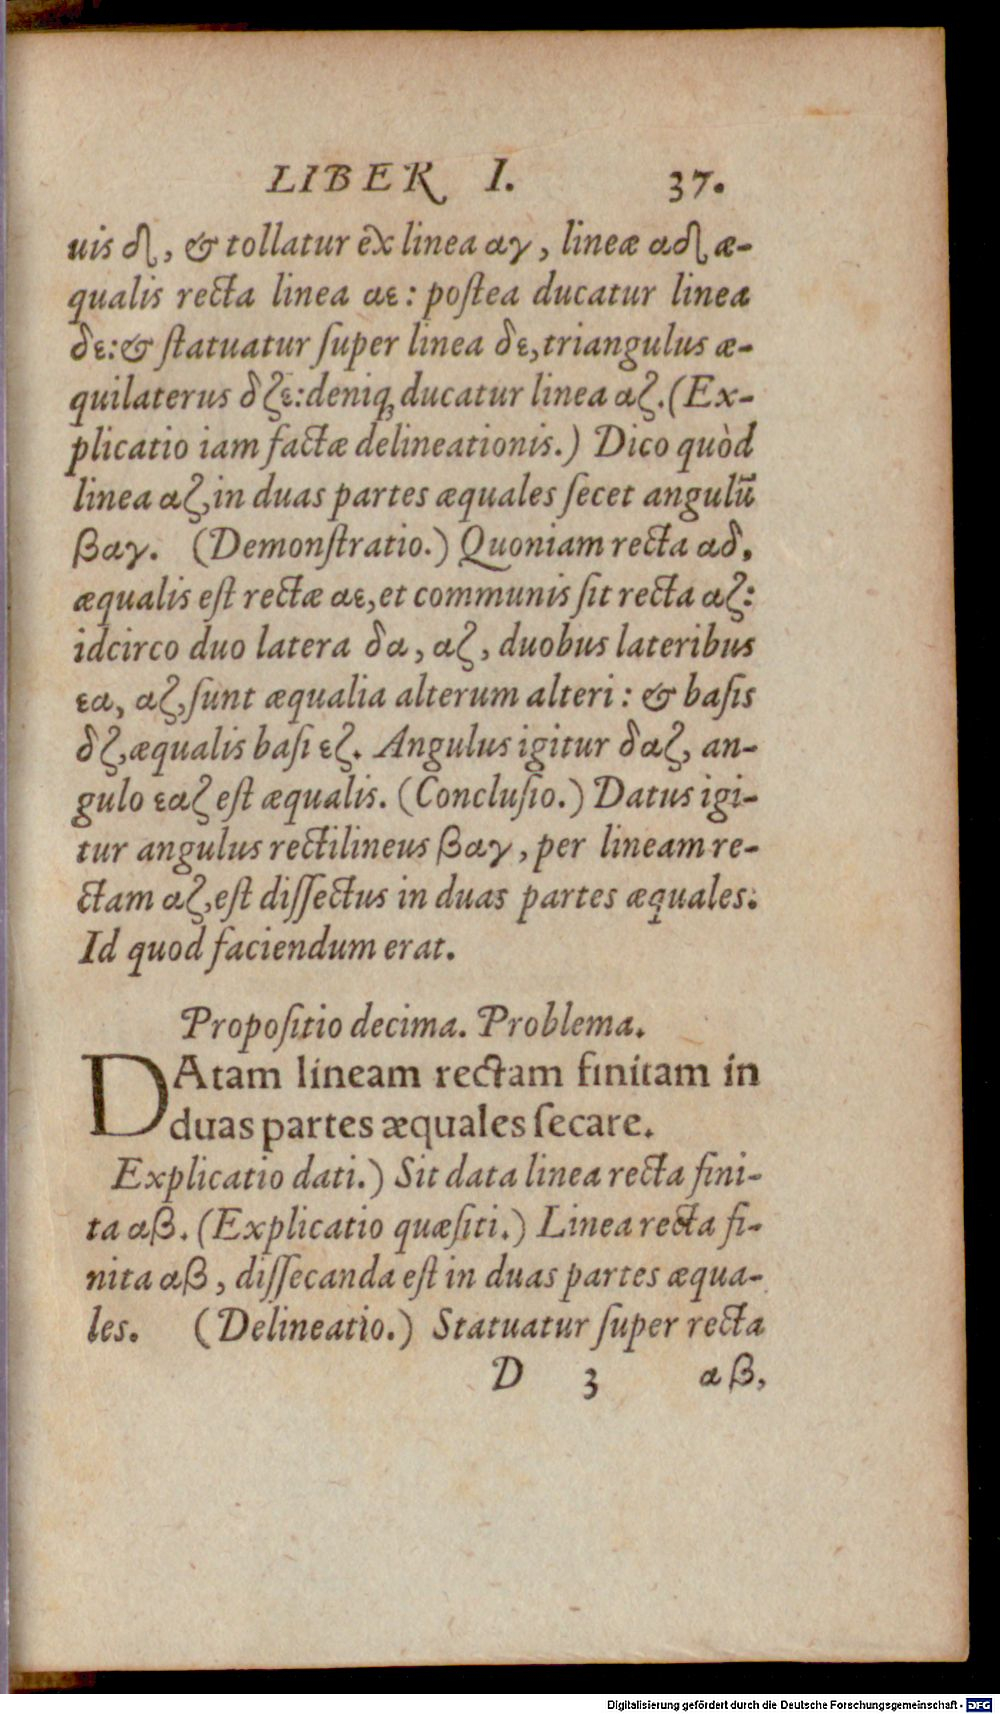 LIBER I. 37.
uis δ, & tollatur ex linea αγ, lineæ αδ æ-
qualis recta linea αε: poſtea ducatur linea
δε: & ſtatuatur ſuper linea δε, triangulus æ-
quilaterus δζε: deniq; ducatur linea αζ. (Ex-
plicatio iam factæ delineationis.) Dico quòd
linea αζ, in duas partes æquales ſecet angulū
βαγ. (Demonſtratio.) Quoniam recta αδ,
æqualis eſt rectæ αε, et communis ſit recta αζ:
idcirco duo latera δα, αζ, duobus lateribus
εα, αζ, ſunt æqualia alterum alteri: & baſis
δζ, æqualis baſi εζ. Angulus igitur δαζ, an-
gulo εαζ eſt æqualis. (Concluſio.) Datus igi-
tur angulus rectilineus βαγ, per lineam re-
ctam αζ, eſt diſſectus in duas partes æquales.
Id quod faciendum erat.
Propoſitio decima. Problema.
DAtam lineam rectam finitam in
duas partes æquales ſecare.
Explicatio dati.) Sit data linea recta fini-
ta αβ. (Explicatio quæſiti.) Linea recta fi-
nita αβ, diſſecanda eſt in duas partes æqua-
les. (Delineatio.) Statuatur ſuper recta
D 3 αβ,
Digitalisierung gefördert durch die Deutsche Forschungsgemeinschaft - DFG